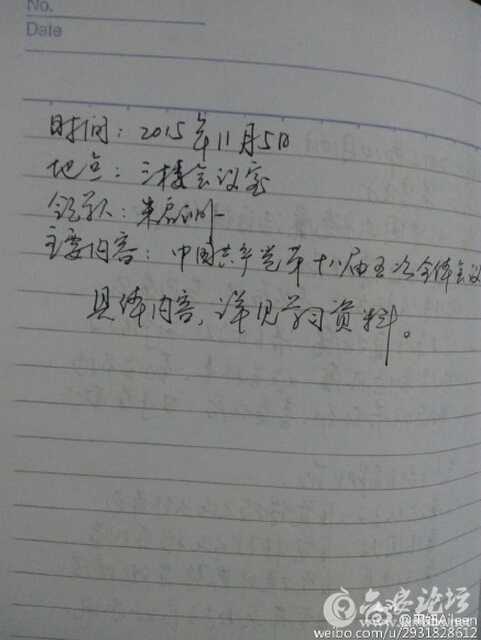 No.
Date
时间：2015年11月5日
地点：三楼会议室
主要内容：中国共产党第十八届五次全体会议
具体内容，详见学习资料。
六安论坛
Aileen
weibo.com/u/2931828612